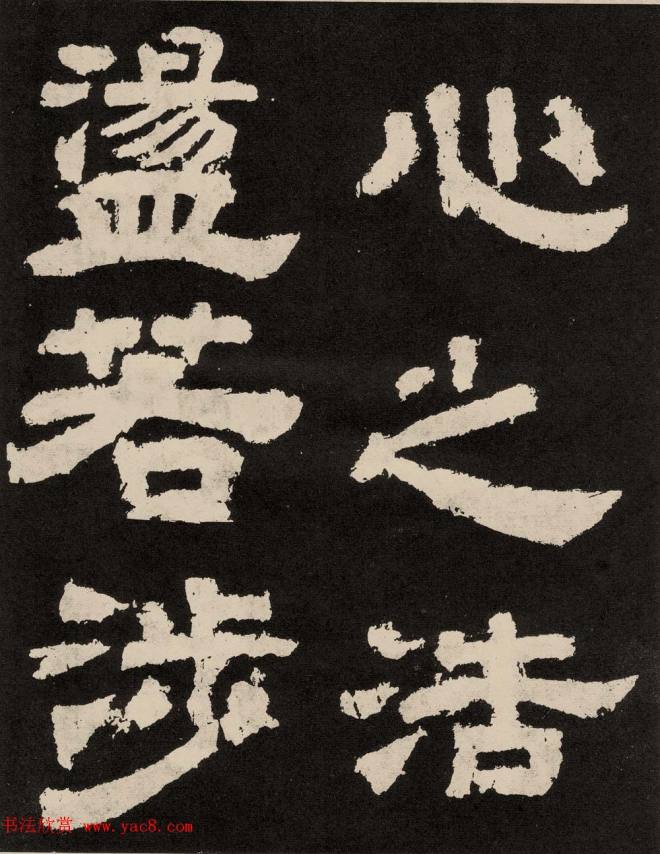 心之浩
盪若涉
书法欣赏 www.yac8.com